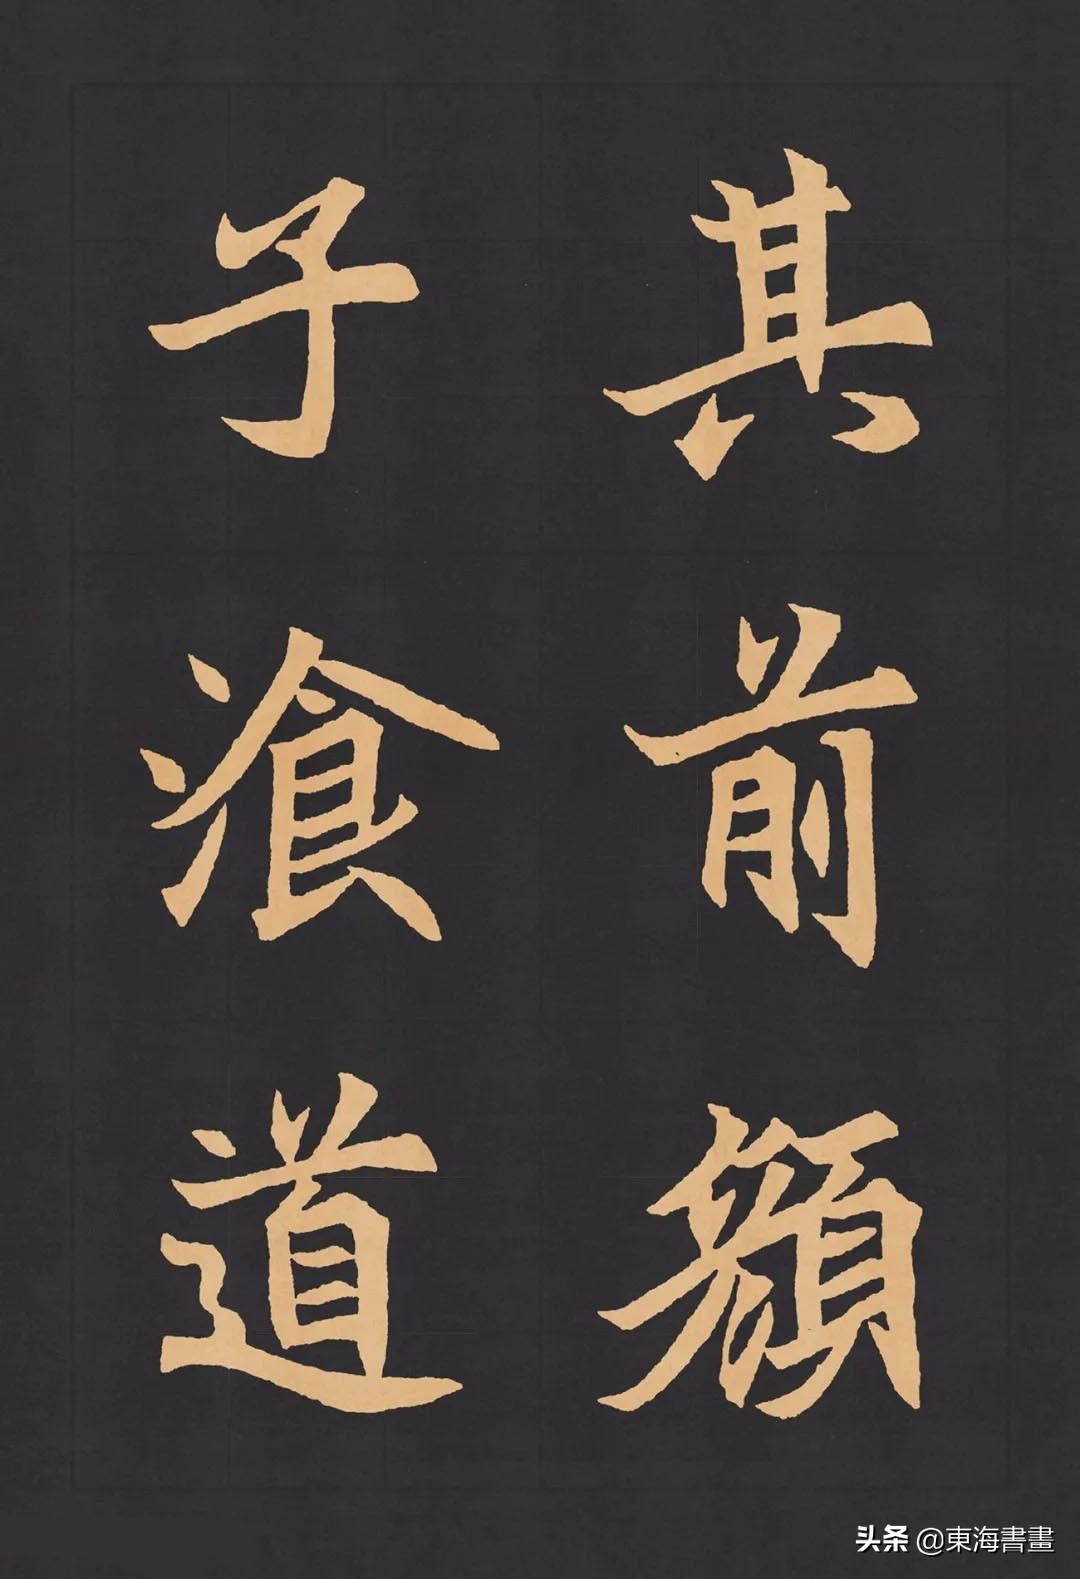 其前顏
子飡道
头条 @東海書畫